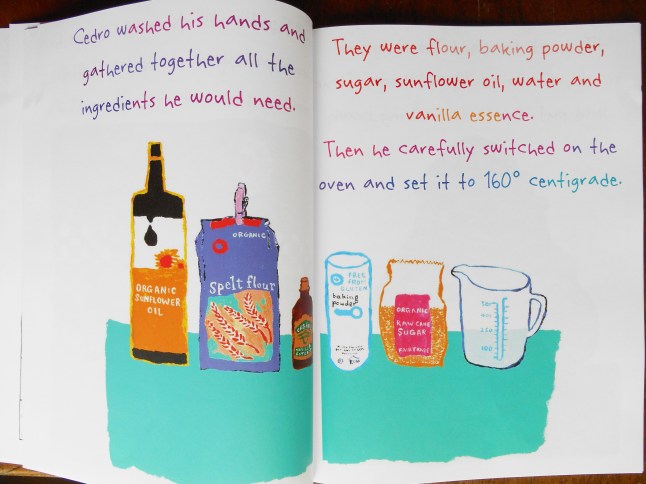 Cedro washed his hands and
gathered together all the
ingredients he would need.
They were flour, baking powder,
sugar, sunflower oil, water and
vanilla essence.
Then he carefully switched on the
oven and set it to 160° centigrade.
ORGANIC
SUNFLOWER
OIL
ORGANIC
Spelt flour
FREE
FROM
GLUTEN
baking
powder
ORGANIC
RAW CANE
SUGAR